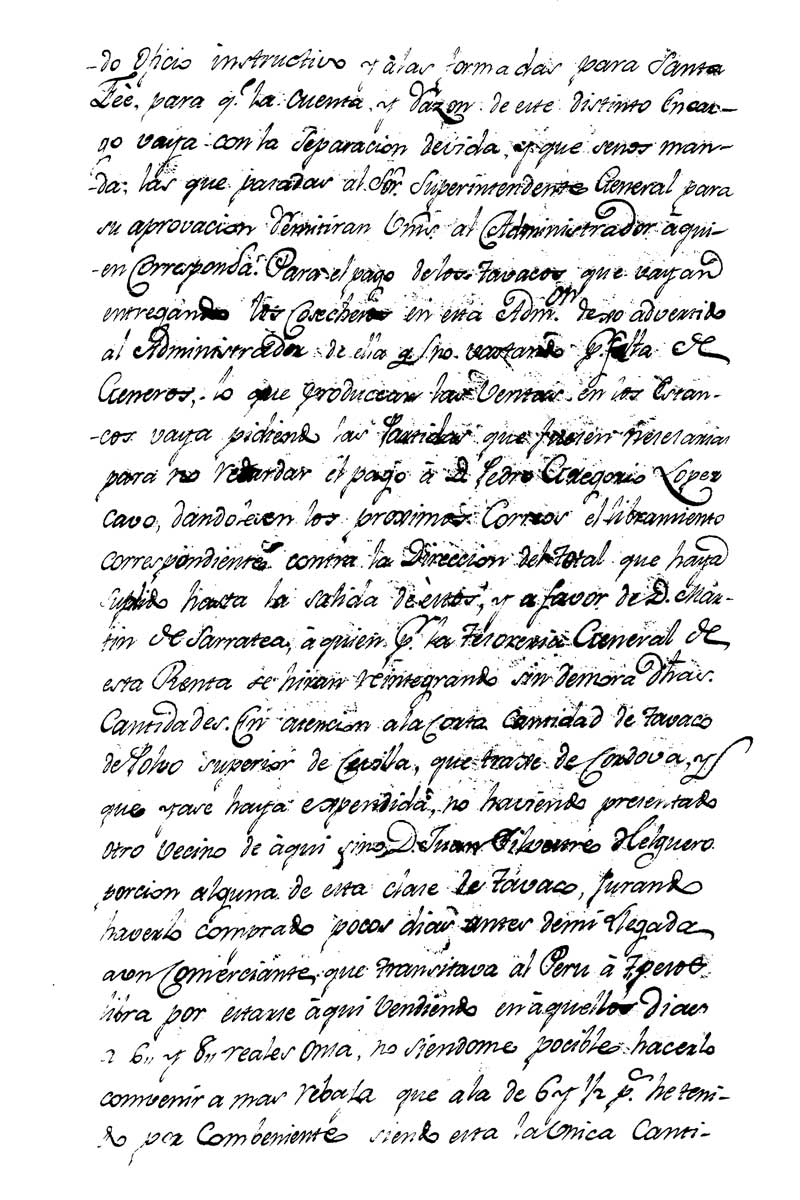 -do Oficio instructivo y à las formadas para Santa
Fèe, para q.e la Cuenta, y Razon de este distinto Encar-
go vaya con la Separacion devida, y que senos man-
da; las que paradas al S.or Superintendente General para
su aprovacion remitiran Vms. al Administrador à qui-
-en Corresponda. Para el pago de los Tavacos que vayan
entregando los Cosecheros en esta Adm.on dexo advertido
al Administrador de ella q.e si no vastando p.r falta de
Generos, lo que producean las Ventas en los Estan-
-cos vaya pidiendo las Partidas que fuesen necesarias
para no retardar el pago à D. Pedro Gregorio Lopez
Cavo, dandole en los proximos Correos el libramiento
correspondiente contra la Direccion del total que haya
suplido hasta la salida de èstos, y a favor de D. Mar-
tin de Sarratea, à quien p.r la Tesoreria General de
esta Renta se hiran reintegrando sin demora dhas.
Cantidades. En atencion a la Corta Cantidad de Tavaco
de Polvo superior de Sevilla, que traxe de Cordova, y
que ya se haya expendida, no haviendo presentado
otro vecino de àqui sino D. Juan Silvestre Helguero
porcion alguna de esta clase de Tavaco, jurando
haverlo comprado pocos dias antes de mi llegada
a un Comerciante, que transitava al Peru à 7 pesos
libra por estarse àqui vendiendo en àquellos dias
a 6,, y 8,, reales onza, no siendome pocible hacerlo
convenir a mas rebaja que ala de 6 y 1/2 p.s he teni-
do por Combeniente siendo esta la Unica Canti-